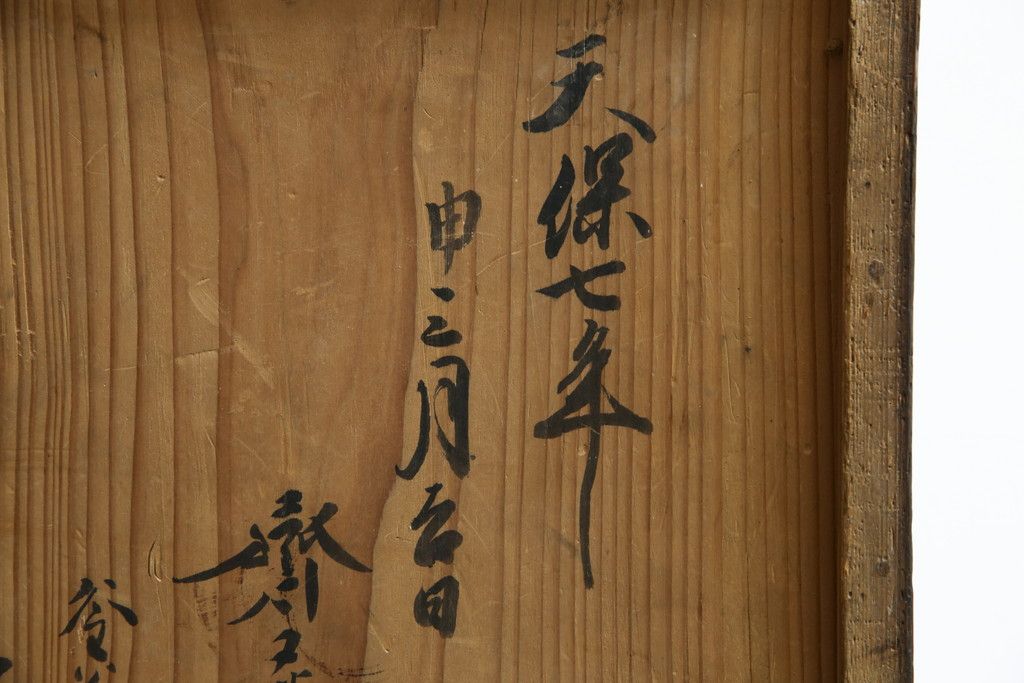 天保七年
申二月吉日
齊